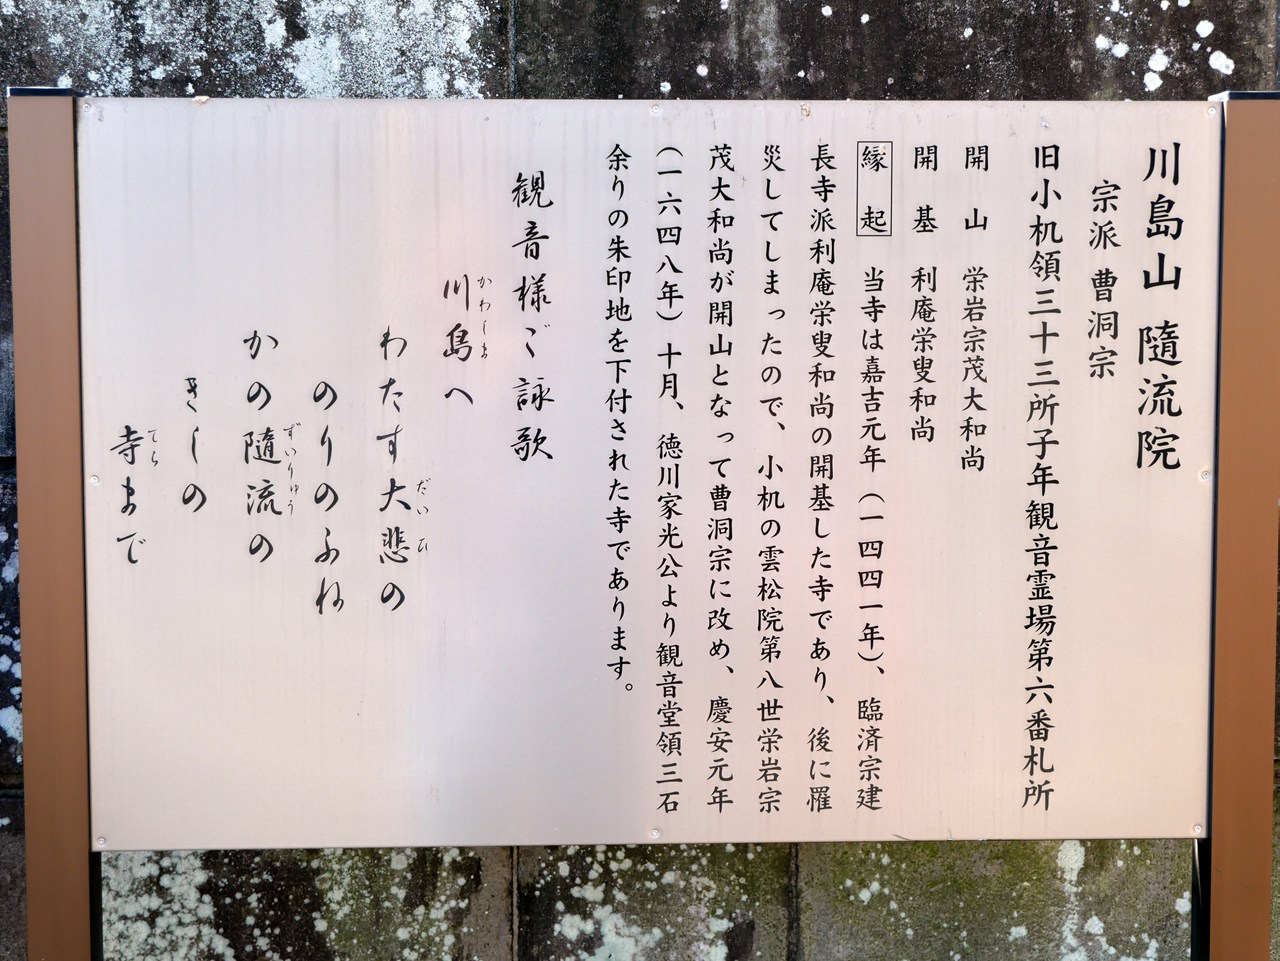 川島山 隨流院
宗派 曹洞宗
旧小机領三十三所子年観音霊場第六番札所
開 山 栄岩宗茂大和尚
開 基 利庵栄叟和尚
縁 起 当寺は嘉吉元年（一四四一年）、臨済宗建
長寺派利庵栄叟和尚の開基した寺であり、後に罹
災してしまったので、小机の雲松院第八世栄岩宗
茂大和尚が開山となって曹洞宗に改め、慶安元年
（一六四八年）十月、徳川家光公より観音堂領三石
余りの朱印地を下付された寺であります。
観音様ご詠歌
川島へ
かわしま
わたす大悲の
だいひ
のりのふね
かの隨流の
ずいりゅう
きしの
寺まで
てら